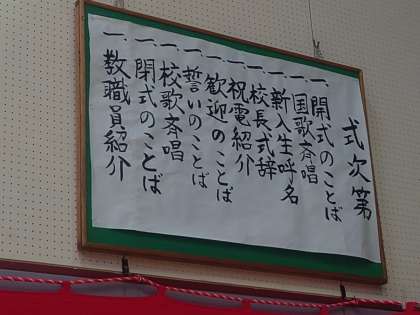 式次第
一、開式のことば
一、国歌斉唱
一、新入生呼名
一、校長式辞
一、祝電紹介
一、歓迎のことば
一、誓いのことば
一、校歌斉唱
一、閉式のことば
一、教職員紹介